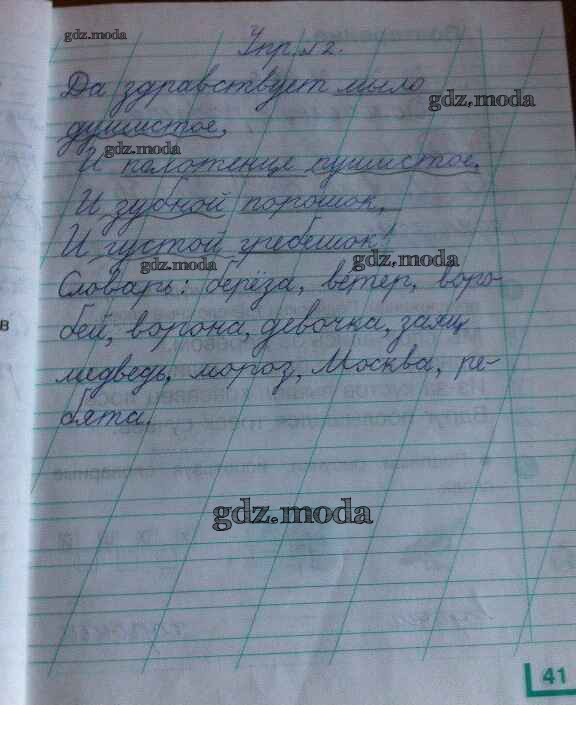 gdz.moda
Упр. 12.
Да здравствует мыло
gdz.moda
душистое,
gdz.moda
И полотенце пушистое.
И зубной порошок,
И густой гребешок!
gdz.moda
gdz.moda
Словарь: берёза, ветер, воро-
бей, ворона, девочка, заяц
медведь, мороз, Москва, ре-
бята.
gdz.moda
41